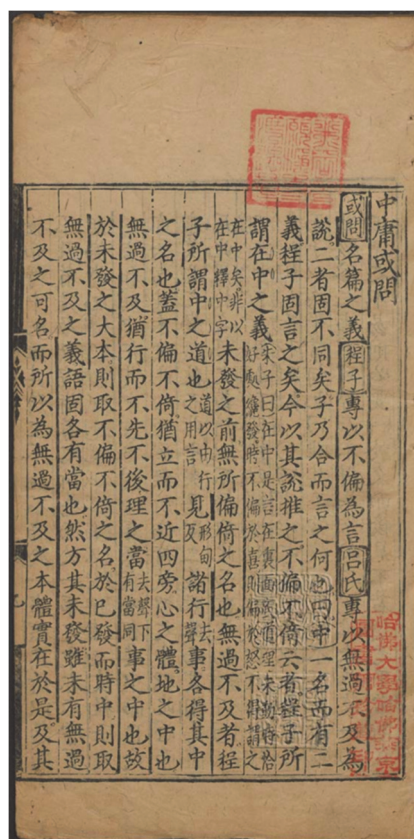 中庸或問
或問名篇之義程子專以不偏為言呂氏專以無過不及為
說二者固不同矣子乃合而言之何也曰中一名而有二
義程子固言之矣今以其說推之不偏不倚云者程子所
謂在中之義
在中矣非以
在中釋中字
未發之前無所偏倚之名也無過不及者程
子所謂中之道也
道以由行
之用言
見
形甸
反
諸行
去
聲
事各得其中
之名也蓋不偏不倚猶立而不近四旁心之體地之中也
無過不及猶行而不先不後理之當
去聲下
有當同
事之中也故
於未發之大本則取不偏不倚之名於已發而時中則取
無過不及之義語固各有當也然方其未發雖未有無過
不及之可名而所以為無過不及之本體實在於是及其
哈佛大學哈佛燕京